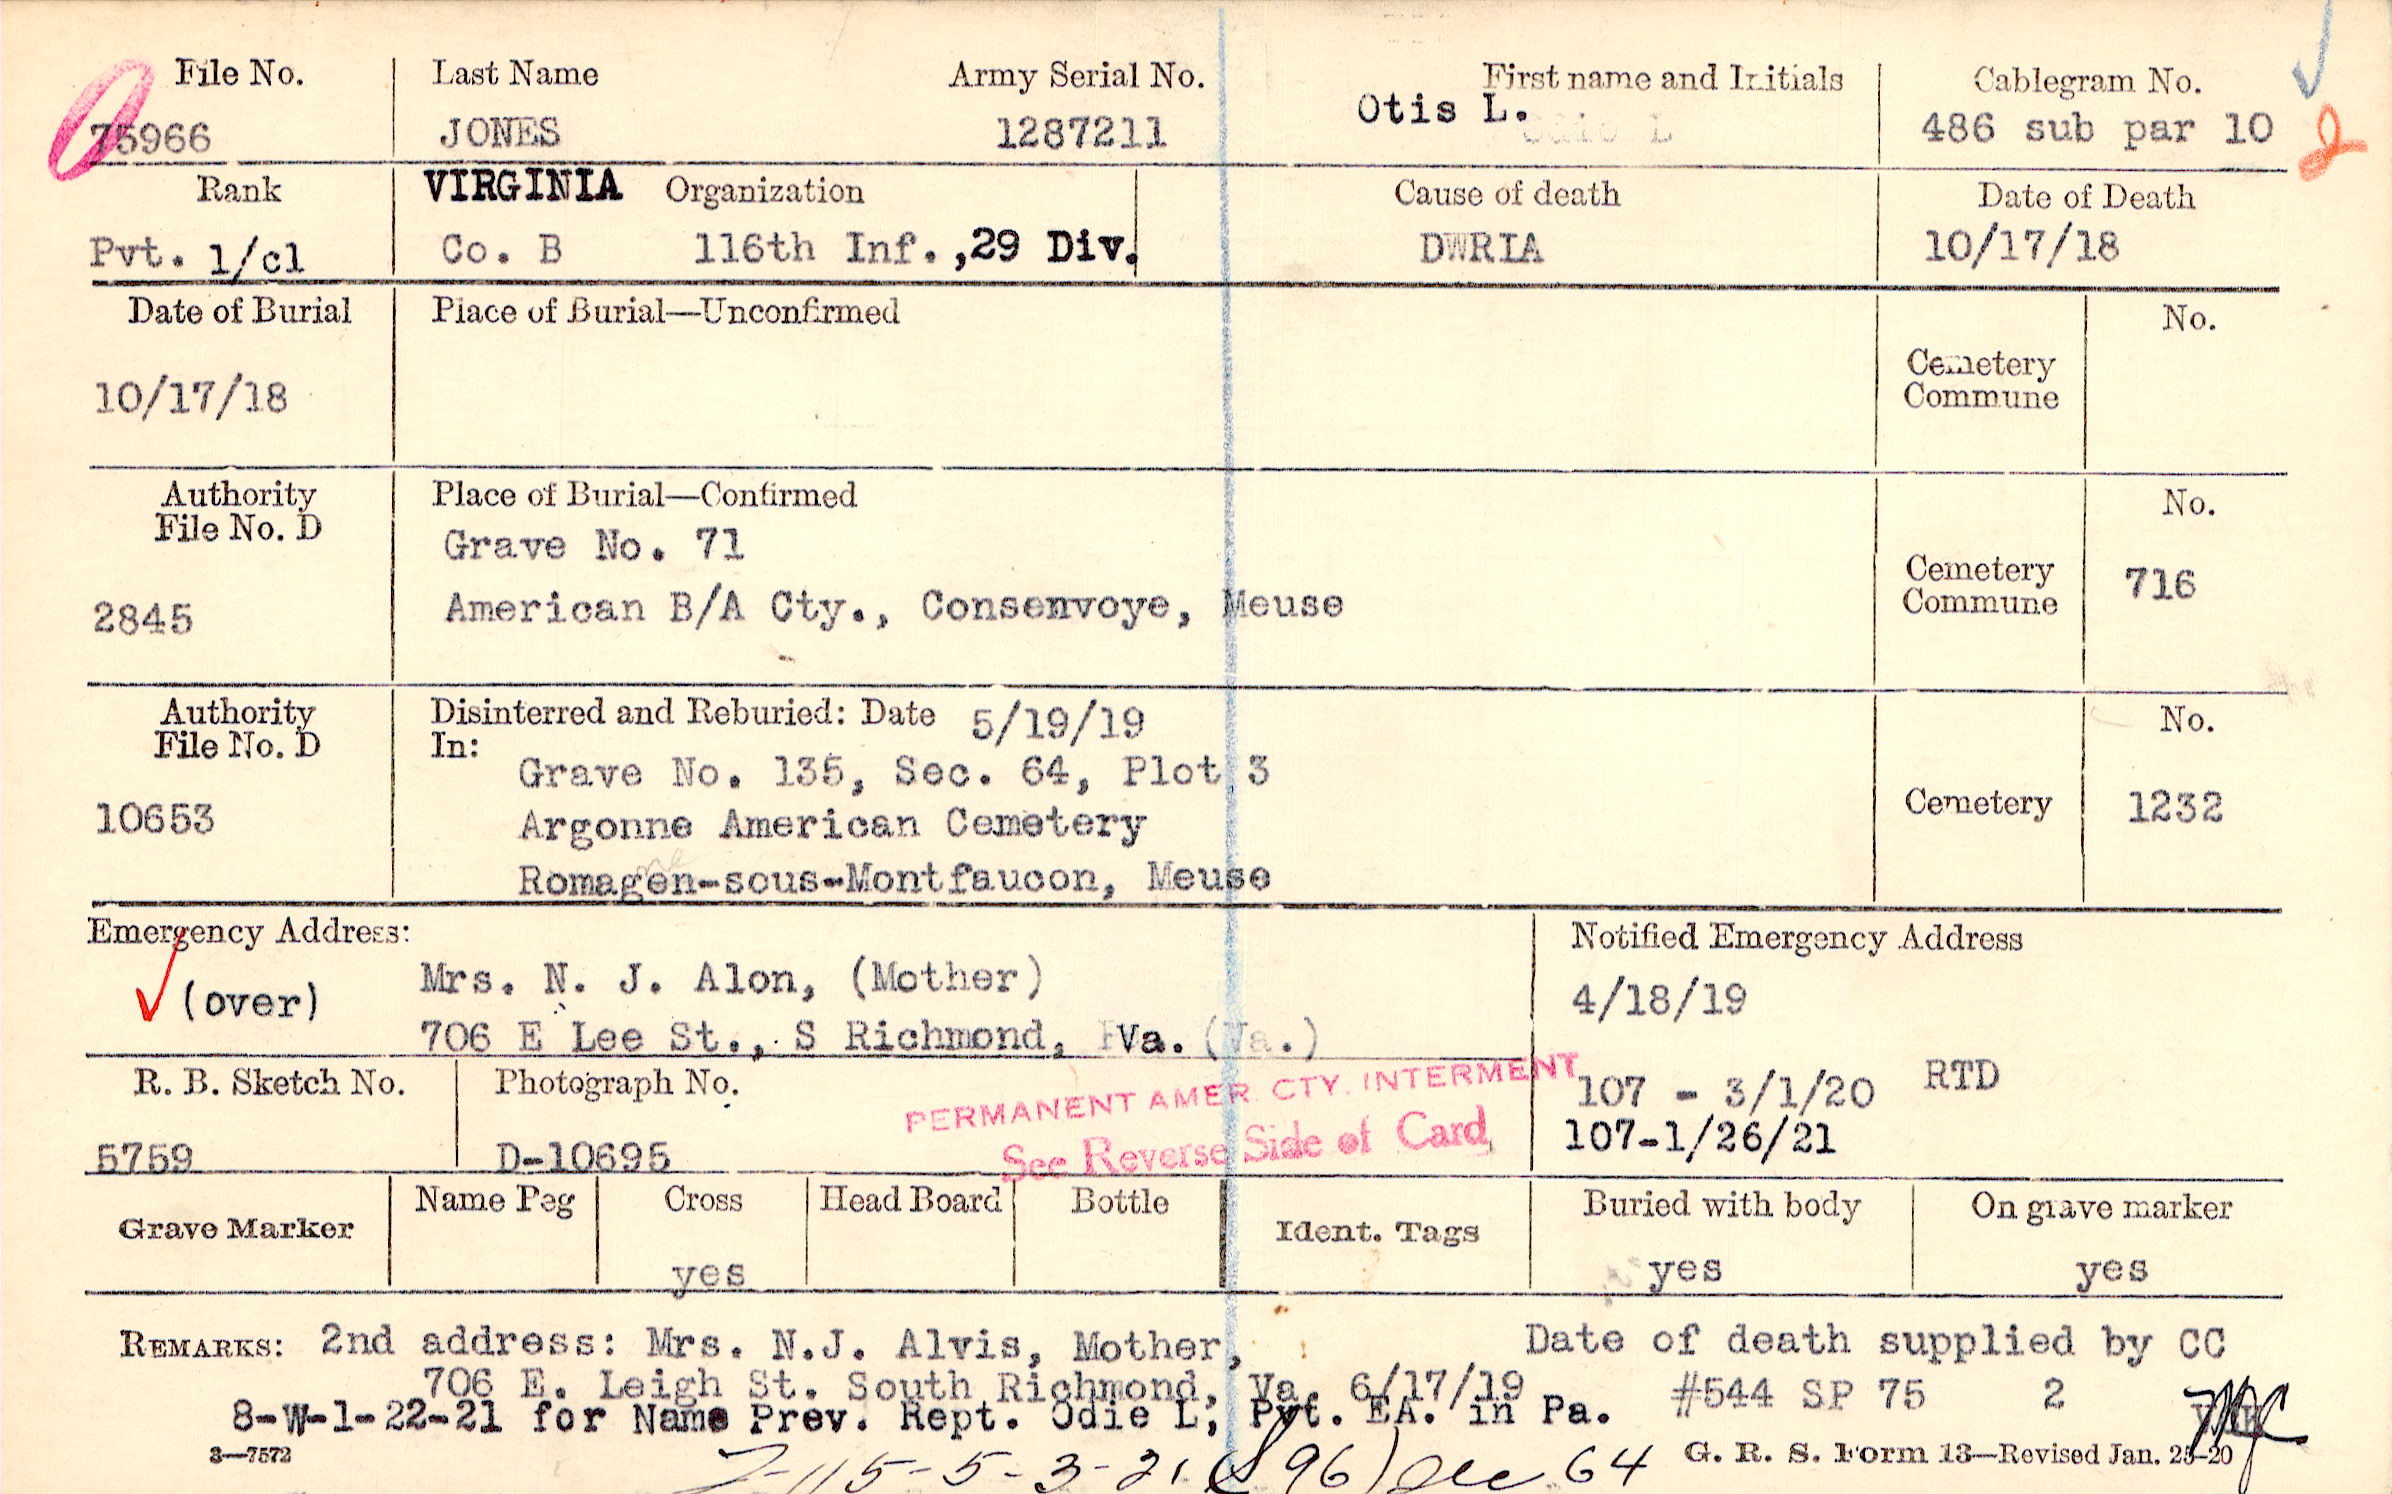 File No. Last Name Army Serial No. First name and Initials Cablegram No.
75966 JONES 1287211 Otis L. 486 sub par 10
Rank VIRGINIA Organization Cause of death Date of Death
Pvt. 1/cl Co. B 116th Inf.,29 Div. DWRIA 10/17/18
Date of Burial Place of Burial—Unconfirmed No.
10/17/18 Cemetery
Commune
Authority Place of Burial—Confirmed No.
File No. D Grave No. 71
2845 American B/A Cty., Consenvoye, Meuse Cemetery 716
Commune
Authority Disinterred and Reburied: Date 5/19/19 No.
File No. D In:
Grave No. 135, Sec. 64, Plot 3
10653 Argonne American Cemetery Cemetery 1232
Romagen-sous-Montfaucon, Meuse
Emergency Address: Notified Emergency Address
(over) Mrs. N. J. Alon, (Mother) 4/18/19
706 E Lee St., S Richmond, Va. (Va.)
R. B. Sketch No. Photograph No. PERMANENT AMER. CTY. INTERMENT 107 - 3/1/20 RTD
5759 D-10695 See Reverse Side of Card 107-1/26/21
Grave Marker Name Peg Cross Head Board Bottle Ident. Tags Buried with body On grave marker
yes yes yes
REMARKS: 2nd address: Mrs. N.J. Alvis, Mother, Date of death supplied by CC
706 E. Leigh St. South Richmond, Va. 6/17/19 #544 SP 75 2
8-W-1-22-21 for Name Prev. Rept. Odie L, Pvt. EA. in Pa.
3—7572 G. R. S. Form 13—Revised Jan. 25-20
5-3-21 64